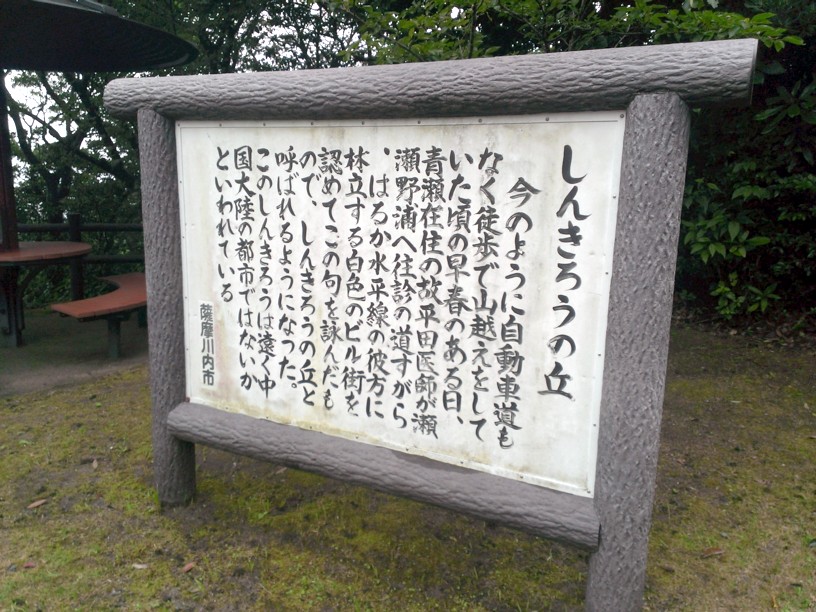 しんきろうの丘
今のように自動車道も
なく徒歩で山越えをして
いた頃の早春のある日、
青瀬在住の故平田医師が瀬
瀬野浦へ往診の道すがら
、はるか水平線の彼方に
林立する白色のビル街を
認めてこの句を詠んだも
ので、しんきろうの丘と
呼ばれるようになった。
このしんきろうは遠く中
国大陸の都市ではないか
といわれている
薩摩川内市